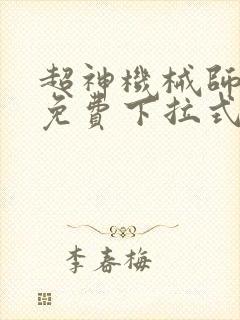 超神機械師
免費下拉式
李春梅